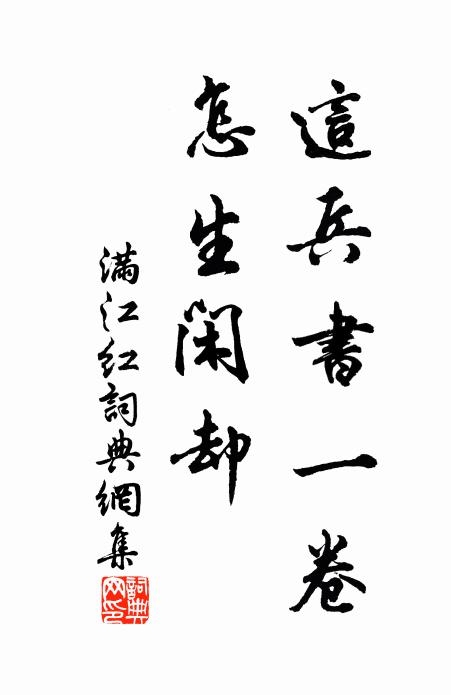 這兵書一卷
怎生閑却
満江红詞典網集
詞典网印